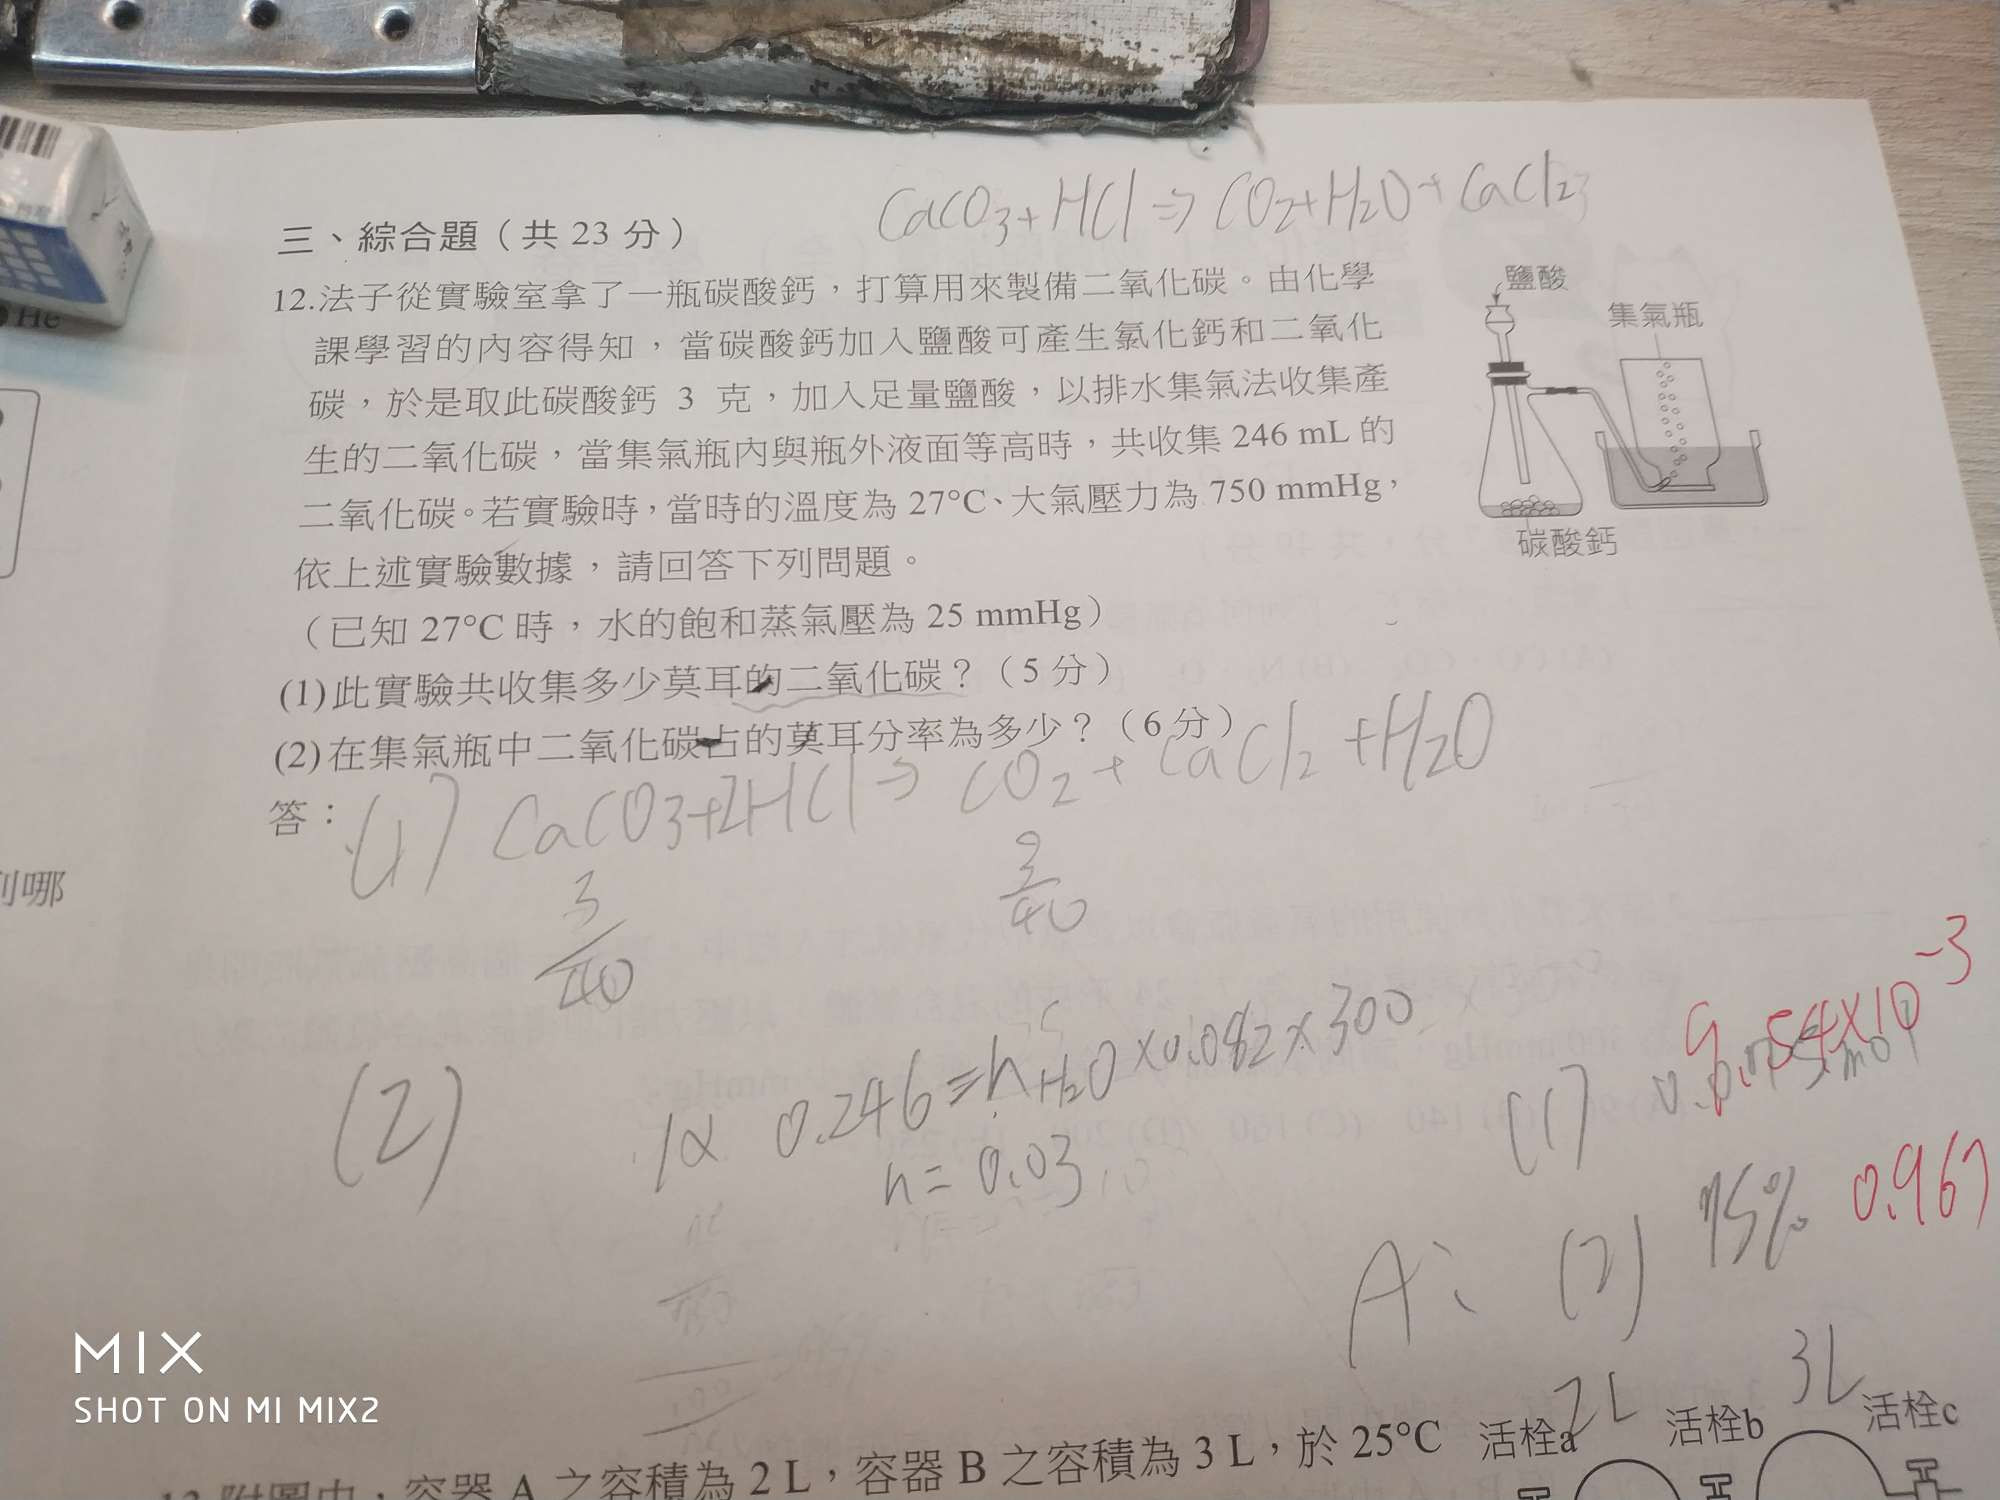 CaCO3+HCl⇒CO2+H2O+CaCl2
三、綜合題（共 23 分）
12.法子從實驗室拿了一瓶碳酸鈣，打算用來製備二氧化碳。由化學
課學習的內容得知，當碳酸鈣加入鹽酸可產生氯化鈣和二氧化
碳，於是取此碳酸鈣 3 克，加入足量鹽酸，以排水集氣法收集產
生的二氧化碳，當集氣瓶內與瓶外液面等高時，共收集 246 mL 的
二氧化碳。若實驗時，當時的溫度為 27°C、大氣壓力為 750 mmHg，
依上述實驗數據，請回答下列問題。
（已知 27°C 時，水的飽和蒸氣壓為 25 mmHg）
(1)此實驗共收集多少莫耳的二氧化碳？（5 分）
(2)在集氣瓶中二氧化碳占的莫耳分率為多少？（6 分）
鹽酸
集氣瓶
碳酸鈣
He
列哪
答：
(1) CaCO3+2HCl⇒ CO2 + CaCl2 +H2O
3
40
3
40
(2)
0.246 = nH2O×0.082×300
n = 0.03
(1)
9.54×10-3
A:
(2) 75% 0.967
2L
3L
附圖中，容器 A 之容積為 2 L，容器 B 之容積為 3 L，於 25°C
活栓a
活栓b
活栓c
MIX
SHOT ON MI MIX2